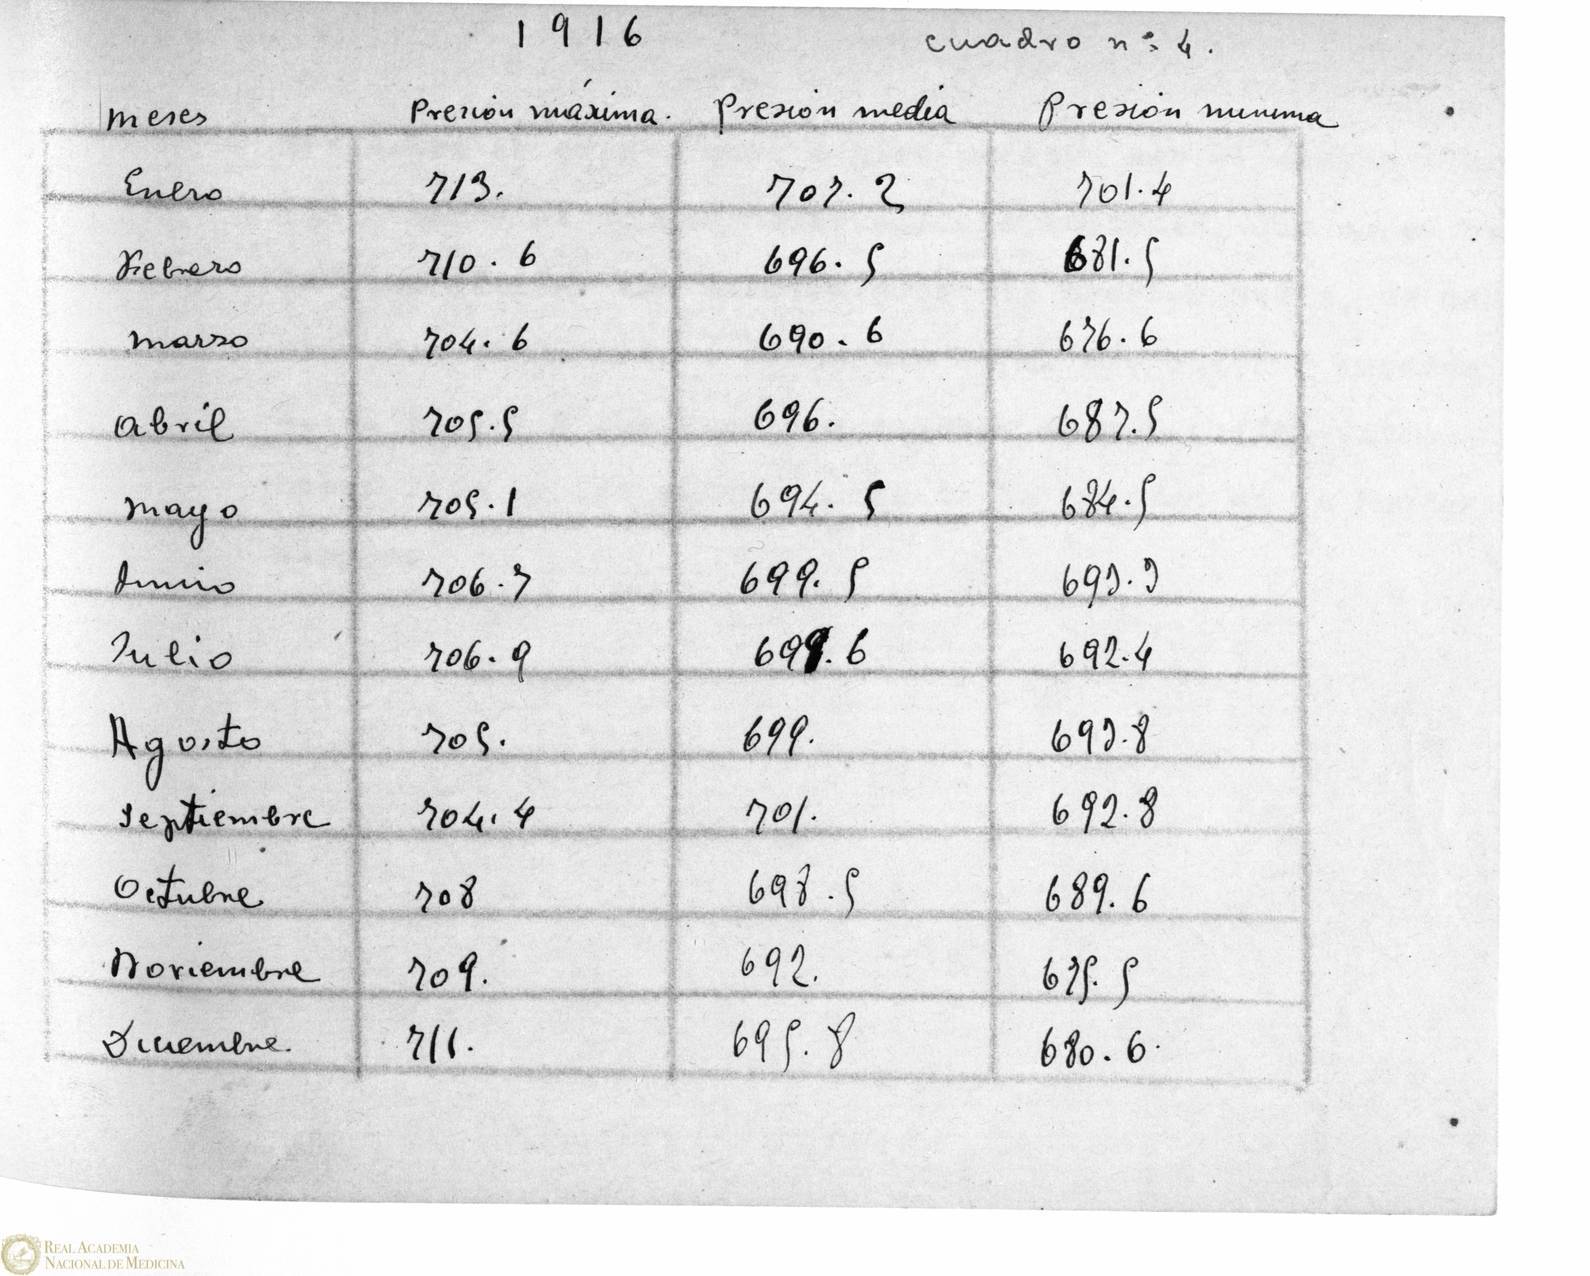 1916 cuadro nº 4.
meses Presión máxima. Presión media Presión minima
Enero 713. 707.2 701.4
Febrero 710.6 696.5 681.5
marzo 704.6 690.6 676.6
abril 705.5 696. 687.5
mayo 705.1 694.5 684.5
Junio 706.7 699.5 693.3
Julio 706.9 699.6 692.4
Agosto 705. 699. 693.8
septiembre 704.4 701. 692.8
Octubre 708 698.5 689.6
Noviembre 709. 692. 675.5
Diciembre. 711. 695.8 680.6
REAL ACADEMIA
NACIONAL DE MEDICINA